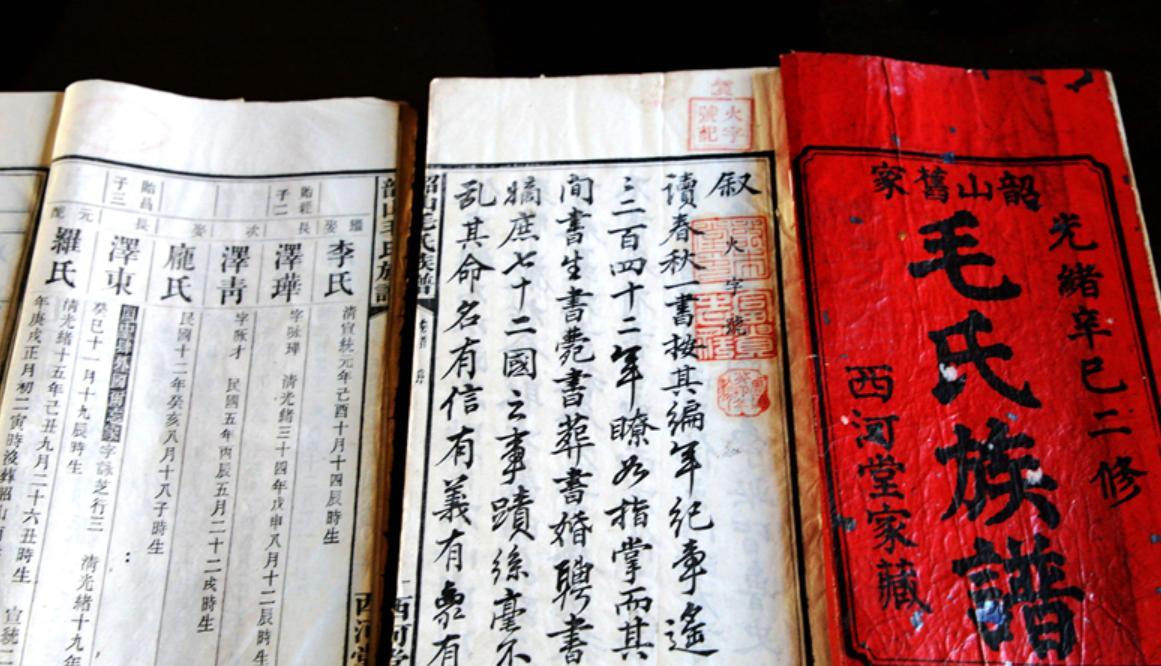 韶山舊家
光緒辛巳二修
毛氏族譜
西河堂家藏
火字號記
火字號
叙
讀春秋一書按其編年紀事遙
二百四十二年瞭如指掌而其
間書生書薨書葬書婚聘書
嫡庶七十二國之事蹟絲毫不
乱其命名有信有義有象有
韶山毛氏族譜
西河堂
韶山毛氏族譜
西河堂
繼娶
李氏
清宣統元年己酉十月十四辰時生
貽經子二
長
澤華
字咏璍 清光緒三十四年戊申八月十二辰時生
次
澤青
字咏才 民國五年丙辰五月二十二戌時生
娶
龐氏
民國十二年癸亥八月十八子時生
貽昌子三
長
澤東
字詠芝行三 清光緒十九年
癸巳十一月十九辰時生
元配
羅氏
清光緒十五年己丑九月二十六丑時生
年庚戌正月初二寅時沒葬韶山